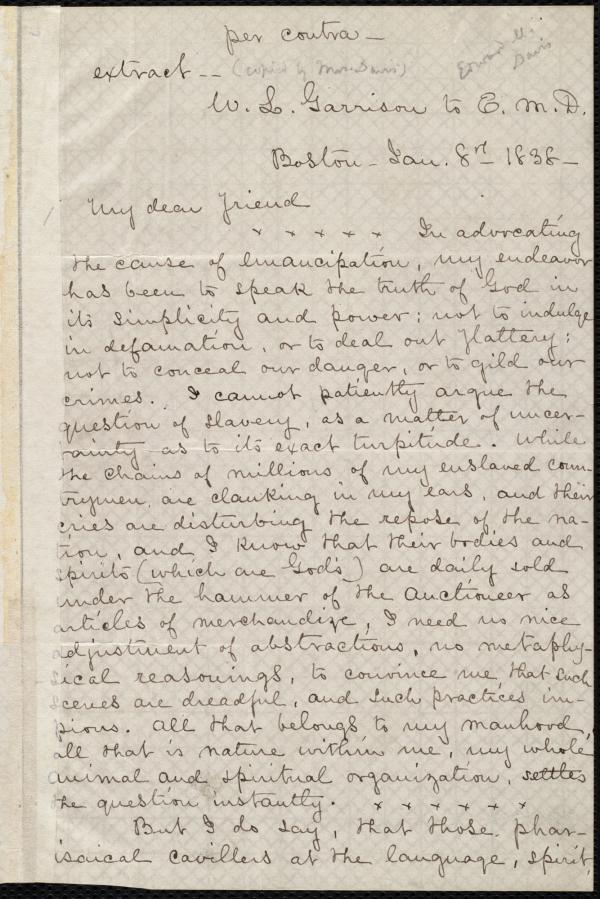 per contra —
extract -- (copied by Mrs. Davis) Edward M.
Davis
W. L. Garrison to E. M. D.
Boston - Jan. 8th 1838 -
My dear Friend
x x x x x In advocating
the cause of emancipation, my endeavor
has been to speak the truth of God in
its simplicity and power; not to indulge
in defamation, or to deal out flattery;
not to conceal our danger, or to gild our
crimes. I cannot patiently argue the
question of slavery, as a matter of uncer-
tainty as to its exact turpitude. While
the chains of millions of my enslaved coun-
trymen, are clanking in my ears, and their
cries are disturbing the repose of the na-
tion, and I know that their bodies and
spirits (which are God's) are daily sold
under the hammer of the auctioneer as
articles of merchandize, I need no nice
adjustment of abstractions, no metaphy-
sical reasonings, to convince me, that such
scenes are dreadful, and such practices im-
pious. All that belongs to my manhood,
all that is nature within me, my whole
animal and spiritual organization, settles
the question instantly. x x x x x x
But I do say, that those phar-
isaical cavillers at the language, spirit,